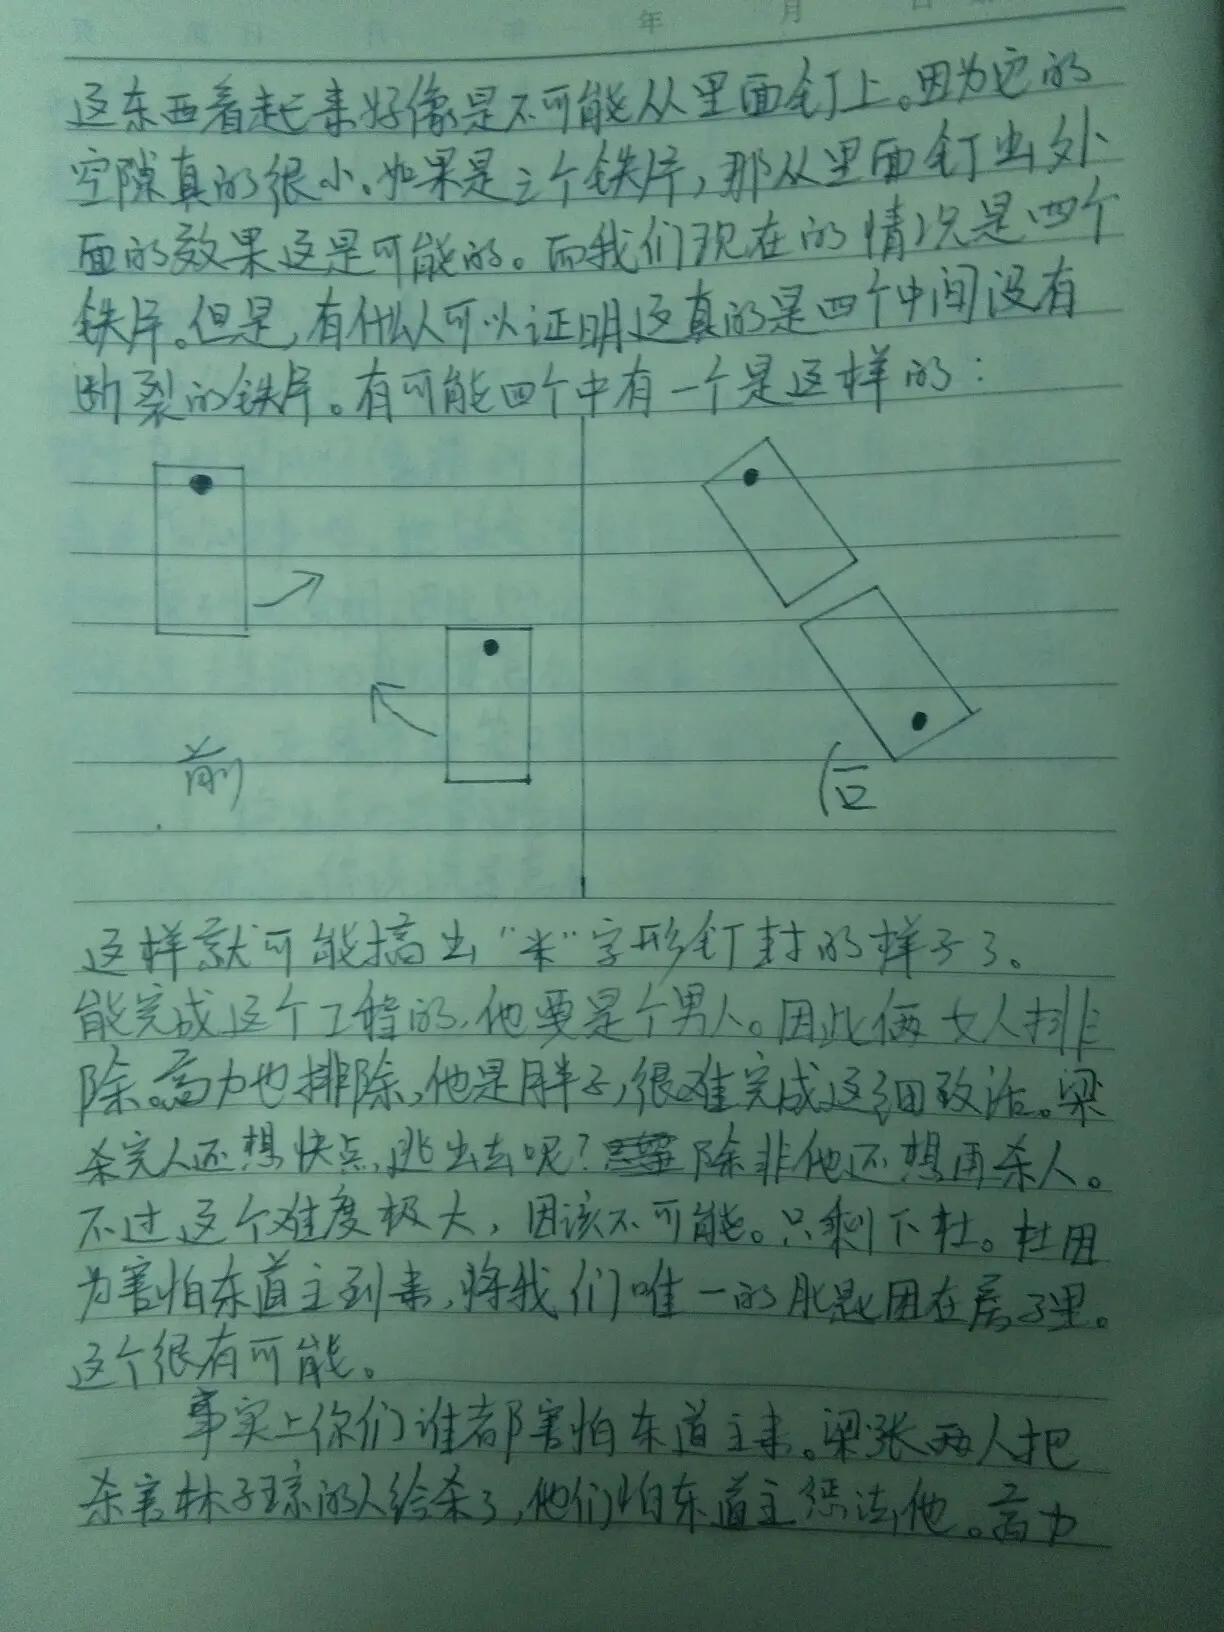 年 月 日
这东西看起来好像是不可能从里面钉上。因为它的
空隙真的很小。如果是三个铁片，那从里面钉出外
面的效果这是可能的。而我们现在的情况是四个
铁片。但是，有什么人可以证明这真的是四个中间没有
断裂的铁片。有可能四个中有一个是这样的：
前
后
这样就可能搞出“米”字形钉封的样子了。
能完成这个工程的，他要是个男人。因此俩女人排
除。高力也排除，他是胖子，很难完成这细致活。梁
杀完人还想快点逃出去呢？除非他还想再杀人。
不过这个难度极大，因该不可能。只剩下杜。杜因
为害怕东道主到来，将我们唯一的钥匙困在房子里。
这个很有可能。
事实上你们谁都害怕东道主来。梁张两人把
杀害林子琼的人给杀了，他们怕东道主惩法他。高力